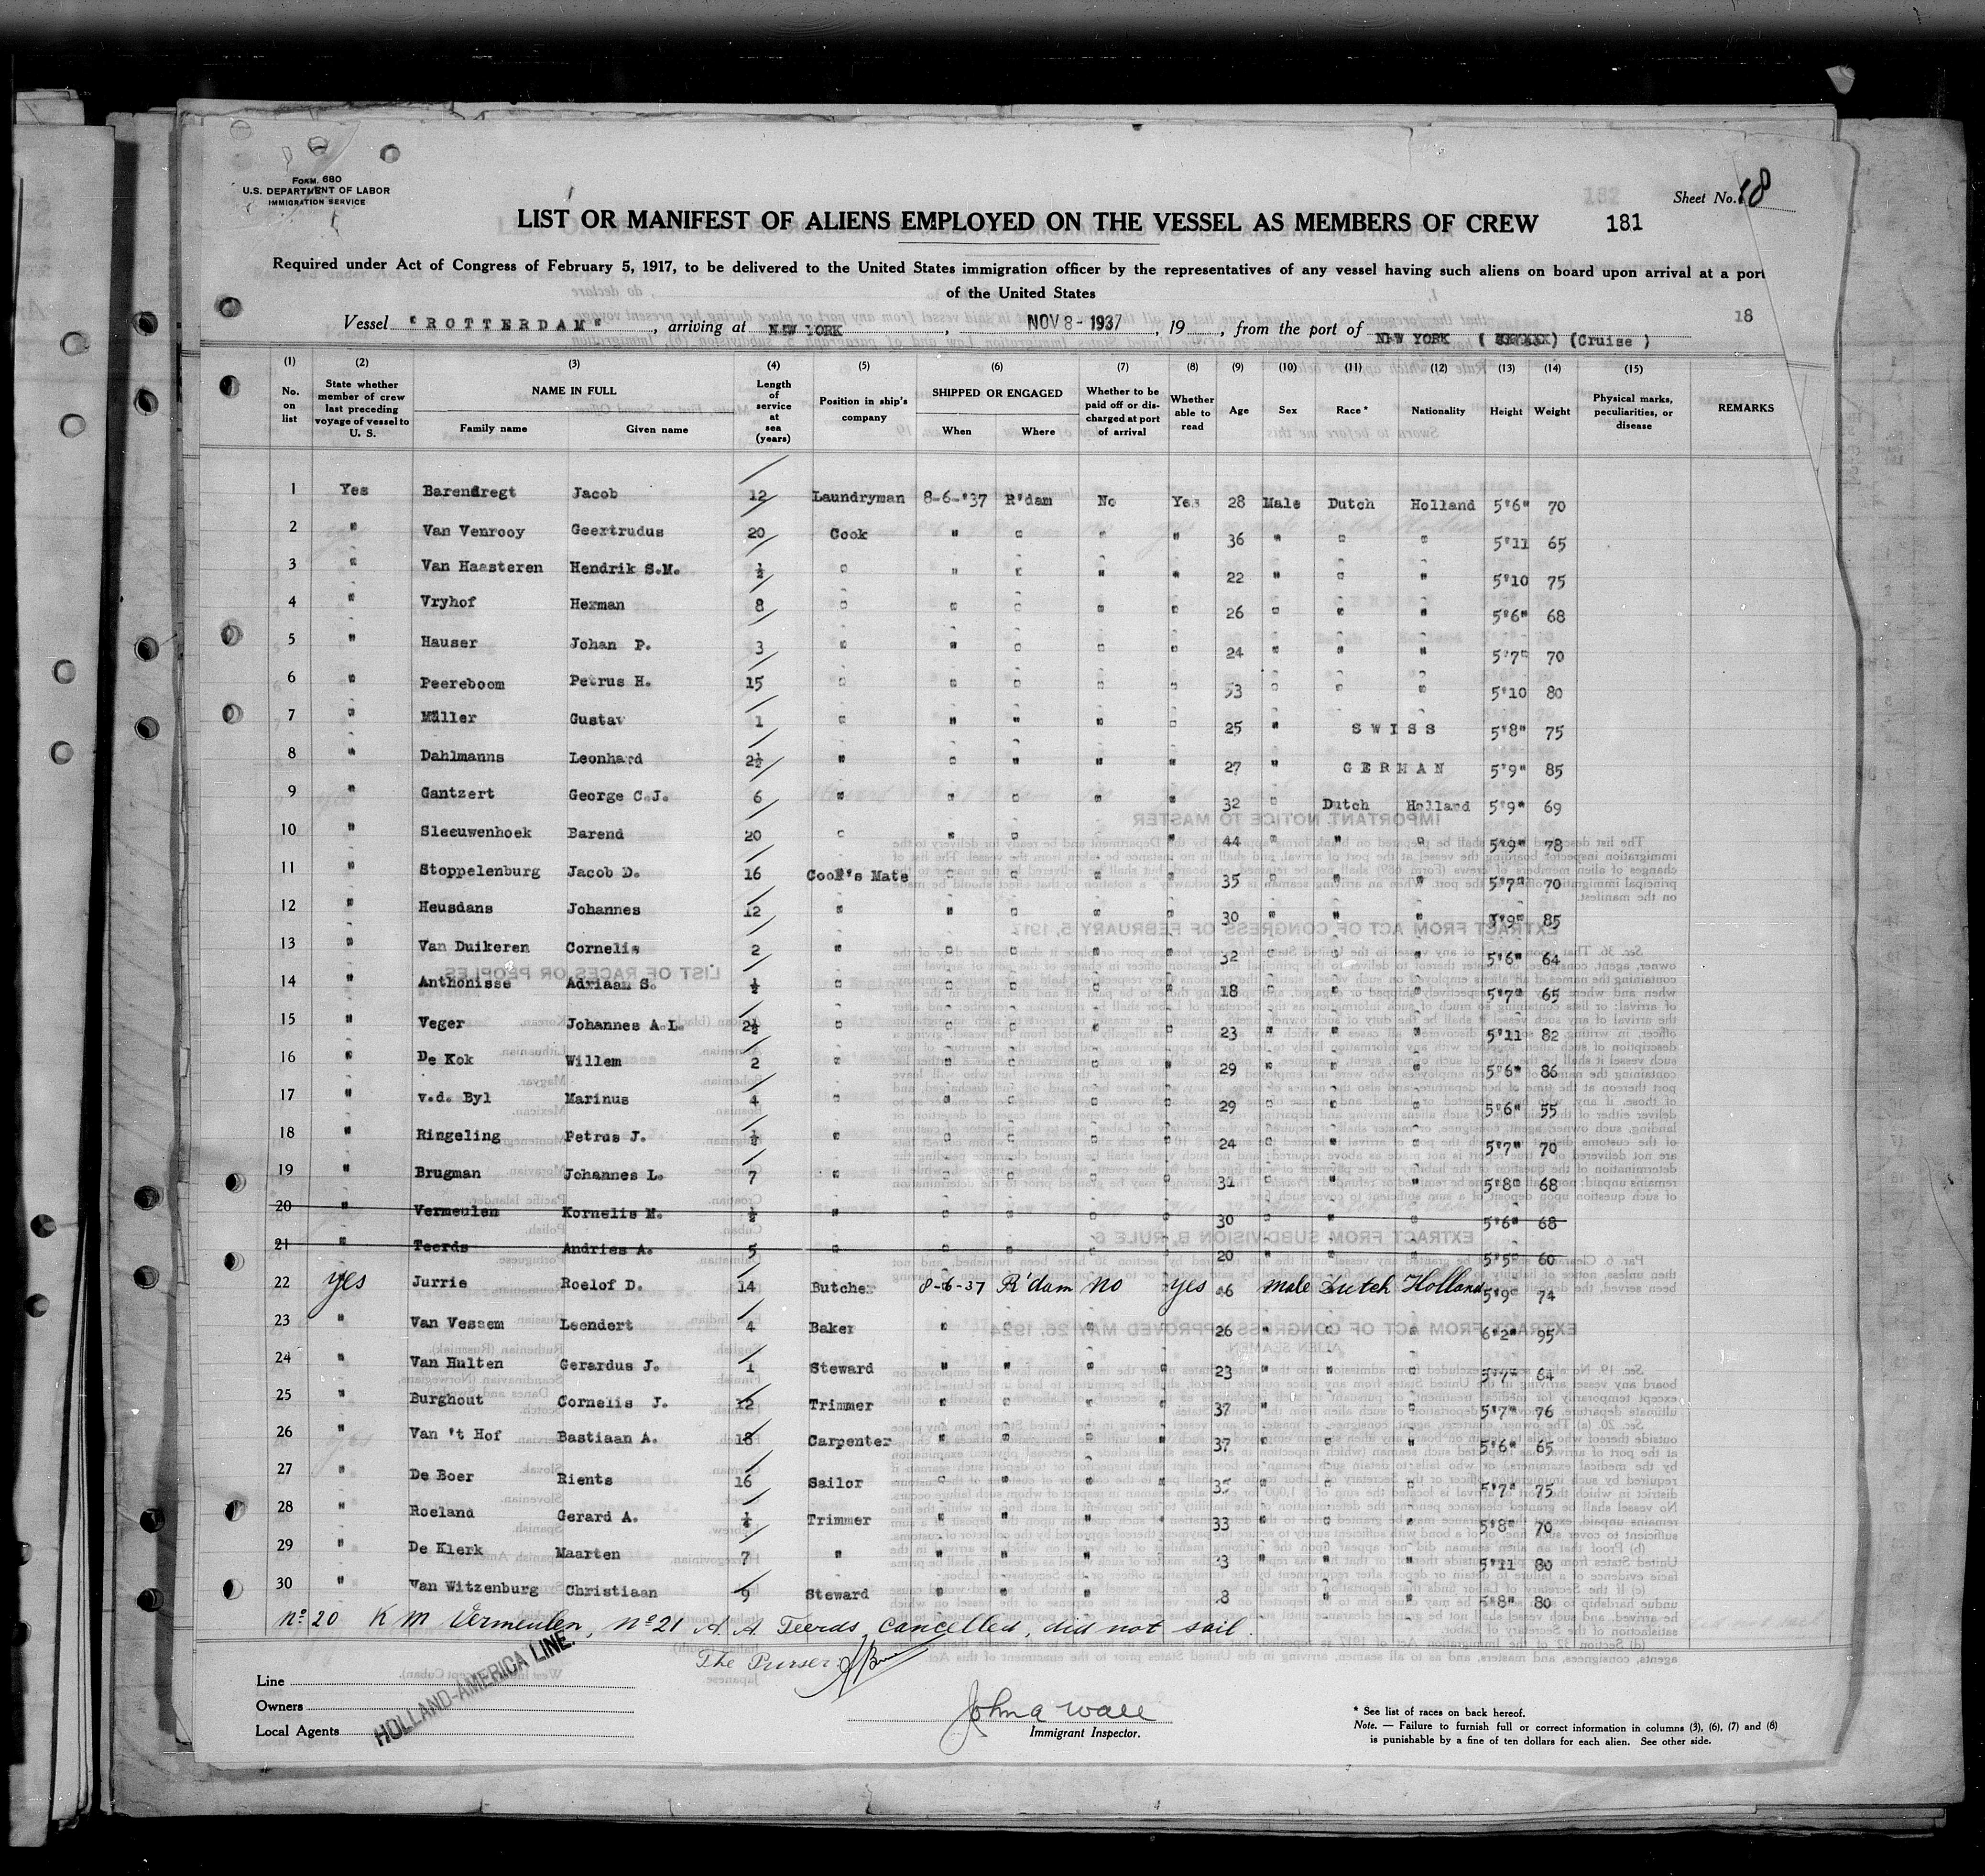 FORM 680
U.S. DEPARTMENT OF LABOR
IMMIGRATION SERVICE
Sheet No. 18
LIST OR MANIFEST OF ALIENS EMPLOYED ON THE VESSEL AS MEMBERS OF CREW 181
Required under Act of Congress of February 5, 1917, to be delivered to the United States immigration officer by the representatives of any vessel having such aliens on board upon arrival at a port
of the United States
18
Vessel "ROTTERDAM", arriving at NEW YORK, NOV 8 - 1937, 19, from the port of NEW YORK (Cruise)
(1) (2) (3) (4) (5) (6) (7) (8) (9) (10) (11) (12) (13) (14) (15)
No. on list State whether member of crew last preceding voyage of vessel to U. S. NAME IN FULL Family name Given name Length of service at sea (years) Position in ship's company SHIPPED OR ENGAGED When Where Whether to be paid off or discharged at port of arrival Whether able to read Age Sex Race* Nationality Height Weight Physical marks, peculiarities, or disease REMARKS
1 Yes Barendregt Jacob 12 Laundryman 8-6-'37 R'dam No Yes 28 Male Dutch Holland 5'6" 70
2 " Van Venrooy Geertrudus 20 Cook " " " " 36 " " " 5'11 65
3 " Van Haasteren Hendrik S.M. ½ " " " " " 22 " " " 5'10 75
4 " Vryhof Herman 8 " " " " " 26 " " " 5'6" 68
5 " Hauser Johan P. 3 " " " " " 24 " " " 5'7" 70
6 " Peereboom Petrus H. 15 " " " " " 53 " " " 5'10 80
7 " Müller Gustav 1 " " " " " 25 " SWISS 5'8" 75
8 " Dahlmanns Leonhard 2½ " " " " " 27 " GERMAN 5'9" 85
9 " Gantzert George C.J. 6 " " " " " 32 " Dutch Holland 5'9" 69
10 " Sleeuwenhoek Barend 20 " " " " 44 " " " 5'9" 78
11 " Stoppelenburg Jacob D. 16 Cook's Mate " " " " 35 " " " 5'7" 70
12 " Heusdans Johannes 12 " " " " " 30 " " " 5'9" 85
13 " Van Duikeren Cornelis 2 " " " " " 32 " " " 5'6" 64
14 " Anthonisse Adriaan S. ½ " " " " " 18 " " " 5'7" 65
15 " Veger Johannes A.L. 2½ " " " " " 23 " " " 5'11 82
16 " De Kok Willem 2 " " " " " 29 " " " 5'6" 86
17 " v.d. Byl Marinus 4 " " " " " 29 " " " 5'6" 55
18 " Ringeling Petrus J. ½ " " " " " 24 " " " 5'7" 70
19 " Brugman Johannes L. 7 " " " " " 31 " " " 5'8" 68
20 " Vermeulen Kornelis M. ½ " " " " " 30 " " " 5'6" 68
21 " Teerds Andries A. 5 " " " " " 20 " " " 5'5" 60
22 yes Jurrie Roelof D. 14 Butcher 8-6-37 R'dam no yes 46 male Dutch Holland 5'9" 74
23 " Van Vessem Leendert 4 Baker " " " " 26 " " " 6'2" 95
24 " Van Hulten Gerardus J. 1 Steward " " " " 23 " " " 5'7" 64
25 " Burghout Cornelis J. 12 Trimmer " " " " 37 " " " 5'7" 76
26 " Van 't Hof Bastiaan A. 18 Carpenter " " " " 37 " " " 5'6" 65
27 " De Boer Rients 16 Sailor " " " " 35 " " " 5'7" 75
28 " Roeland Gerard A. Trimmer " " " " 33 " " " 5'8" 70
29 " De Klerk Maarten 7 " " " " " " " " 5'11 80
30 " Van Witzenburg Christiaan 9 Steward " " " " " " " 5'8" 80
No 20 K M Vermeulen, No 21 A A Teerds, cancelled, did not sail.
The Purser:
Line
Owners
Local Agents
HOLLAND-AMERICA LINE.
John A Wall
Immigrant Inspector.
* See list of races on back hereof.
Note. — Failure to furnish full or correct information in columns (3), (6), (7) and (8)
is punishable by a fine of ten dollars for each alien. See other side.